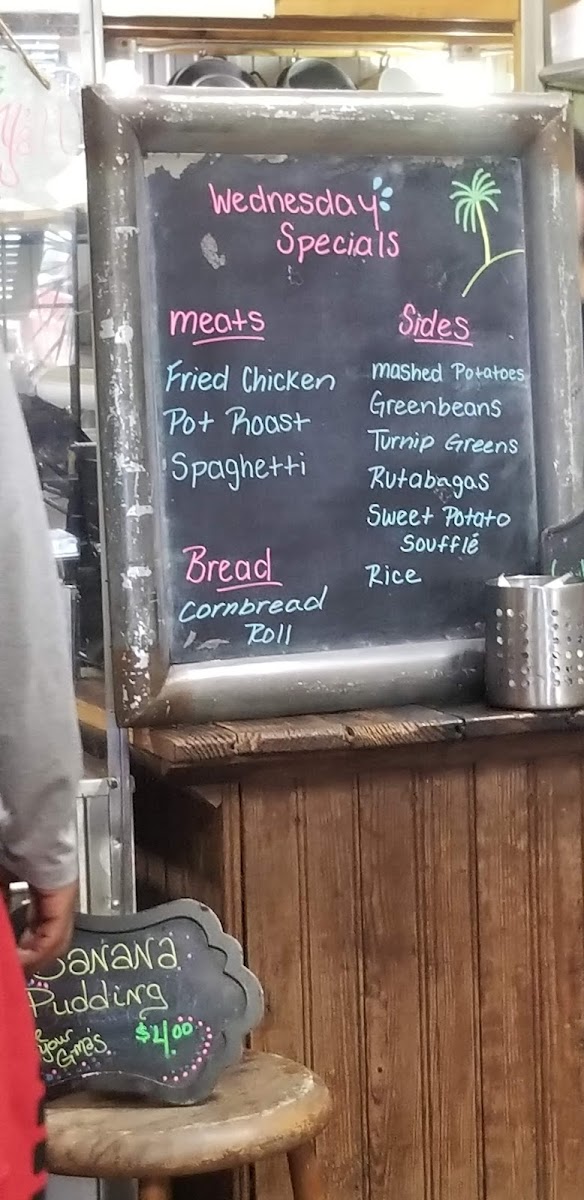 Wednesday
Specials
meats
Fried Chicken
Pot Roast
Spaghetti
Bread
Cornbread
Roll
Sides
mashed Potatoes
Greenbeans
Turnip Greens
Rutabagas
Sweet Potato
Soufflé
Rice
Banana
Pudding
your
Gma's
$4.00